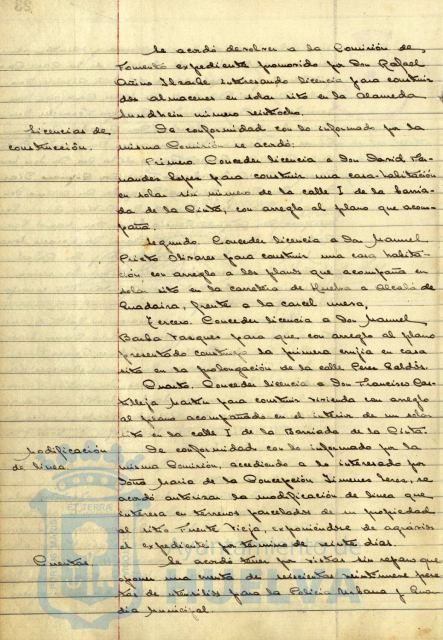 Se acordó devolver a la Comisión de
Fomento expediente promovido por Don Rafael
interesando licencia para construir
dos almacenes en solar sito en la Alameda
Sundheim número veintiocho.
Licencias de
construcción.
De conformidad con lo informado por la
misma Comisión se acordó:
Primero. Conceder licencia a Don David Fer-
nandez Lopez para construir una casa-habitación
en solar sin número de la calle I de la Barria-
da de la Cinta, con arreglo al plano que acom-
paña.
Segundo. Conceder licencia a Don Manuel
Prieto Olivares para construir una casa habita-
ción con arreglo a los planos que acompaña en
solar sito en la carretera de Huelva a Alcalá de
Guadaira, frente a la carcel nueva.
Tercero. Conceder licencia a Don Manuel
Barba Vazques para que con arreglo al plano
presentado construya la primera crujia en casa
sito en la prolongación de la calle Perez Galdós.
Cuarto. Conceder licencia a Don Francisco Cas-
tilleja Martin para construir vivienda con arreglo
al plano acompañado en el interior de un solar
sito en la calle I de la Barriada de la Cinta.
Modificación
de linea.
De conformidad con lo informado por la
misma Comisión, accediendo a lo interesado por
Doña Maria de la Concepción Jimenes se
acordó autorizar la modificación de linea que
interesa en terrenos parcelados de su propiedad
al sitio Fuente Vieja, exponiendose de agravios
el expediente por termino de veinte dias.
Cuentas.
Se acordó tener por vistas sin reparo que
oponer una cuenta de seiscientas veintinueve pese-
tas de utensilios para la Policia Urbana y Guar-
dia Municipal.
Ayuntamiento de
HUELVA